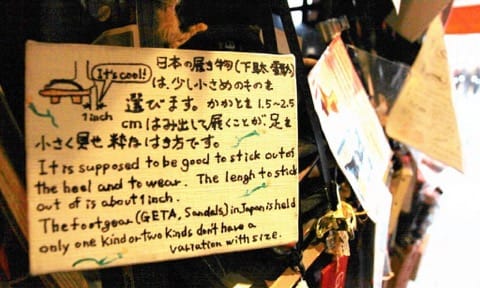 It's cool!
1 inch
日本の履き物(下駄 雪駄)
は、少し小さめのものを
選びます。かかとを 1.5~2.5
cm はみ出して履くことが 足を
小さく見せ 粋なはき方です。
It is supposed to be good to stick out of
the heel and to wear. The lengh to stick
out of is about 1 inch.
The footgear (GETA, Sandals) in Japan is held
only one kind or two kinds don't have a
variation with size.